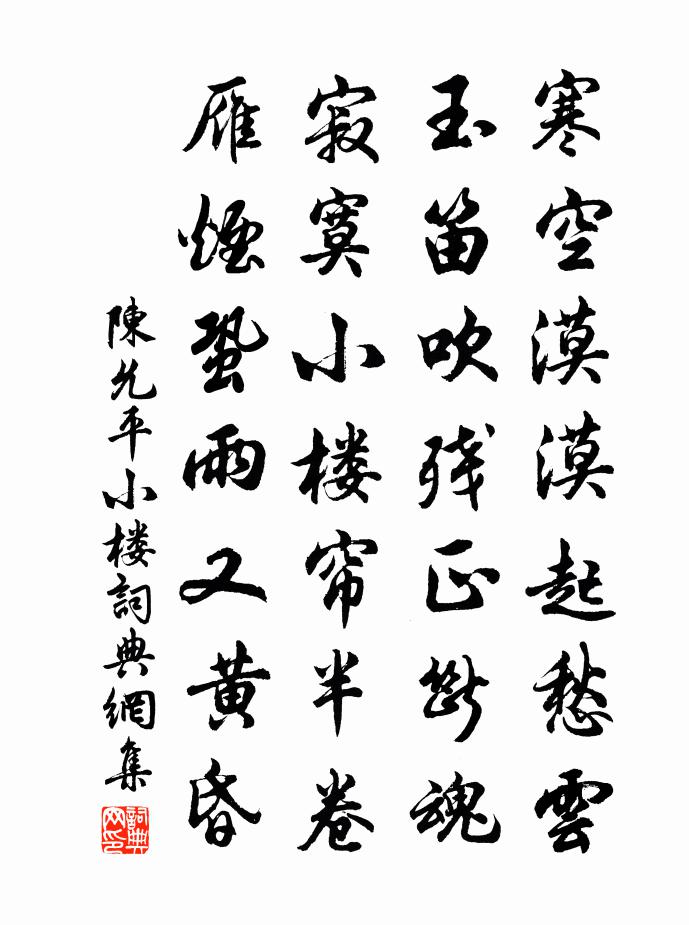 寒空漠漠起愁雲
玉笛吹残正斷魂
寂寞小楼帘半卷
雁煙蛩雨又黄昏
陳允平小楼詞典網集
詞典網印